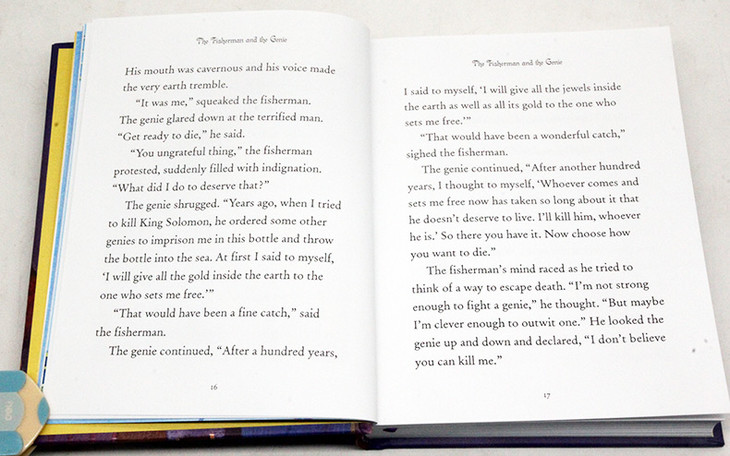 The Fisherman and the Genie
His mouth was cavernous and his voice made
the very earth tremble.
“It was me,” squeaked the fisherman.
The genie glared down at the terrified man.
“Get ready to die,” he said.
“You ungrateful thing,” the fisherman
protested, suddenly filled with indignation.
“What did I do to deserve that?”
The genie shrugged. “Years ago, when I tried
to kill King Solomon, he ordered some other
genies to imprison me in this bottle and throw
the bottle into the sea. At first I said to myself,
‘I will give all the gold inside the earth to the
one who sets me free.’”
“That would have been a fine catch,” said
the fisherman.
The genie continued, “After a hundred years,
16
The Fisherman and the Genie
I said to myself, ‘I will give all the jewels inside
the earth as well as all its gold to the one who
sets me free.’”
“That would have been a wonderful catch,”
sighed the fisherman.
The genie continued, “After another hundred
years, I thought to myself, ‘Whoever comes and
sets me free now has taken so long about it that
he doesn’t deserve to live. I’ll kill him, whoever
he is.’ So there you have it. Now choose how
you want to die.”
The fisherman’s mind raced as he tried to
think of a way to escape death. “I’m not strong
enough to fight a genie,” he thought. “But maybe
I’m clever enough to outwit one.” He looked the
genie up and down and declared, “I don’t believe
you can kill me.”
17